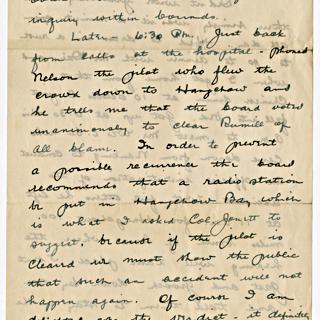 inquiry within bounds.
Later - 6:30 P.M. Just back
from calls at the hospital - phoned
Nelson the pilot who flew the
crowd down to Hangchow and
he tells me that the board voted
unanimously to clear Rumill of
all blame. In order to prevent
a possible recurrence the board
recommends that a radio station
be put in Hangchow Bay which
is what I asked Col. Jouett to
suggest, because if the pilot is
cleared we must show the public
that such an accident will not
happen again. Of course I am
the verdict - it definitely